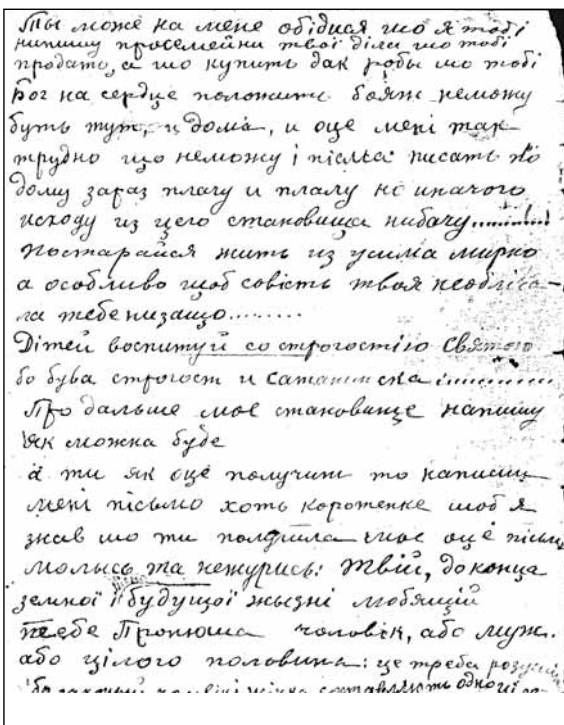 Ты може на мене обідися шо я тобі
напишу просемейни твої діла шо тобі
продать, а шо купить дак робы шо тобі
Бог на сердце положить бояж неможу
буть тут, и дома, и оце мені так
трудно що неможу і пісма писать до
дому зараз плачу и плачу не иначого
исходу из цего становища нибачу........!
Постарайся жить из усима мирно
а особливо щоб совість твоя необліча-
ла тебе низащо.........
Дітей воспитуй со строгостію Святою
бо бува строгост и сатанинска ............
Про дальше моє становище напишу
як можна буде
а ти як оце получиш то напиши
мені пісьмо хоть коротенке шоб я
знав шо ти получила моє оце пісьмо
молысь та нежурись! Твій, до конца
земної і будущої жызні любящій
тебе Пронюша чоловік, або муж.
або цілого половина: це треба розуміт
бо законый чоловікі жінка составляють одно ціло